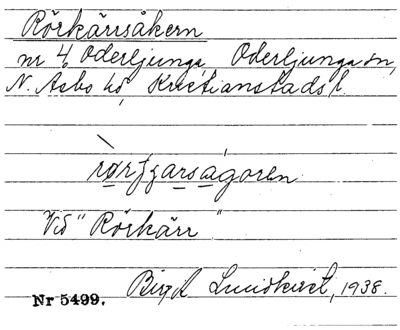 Rörkärrsåkern
nr 4, Oderljunga, Oderljunga sn,
N. Åsbo hd, Kristianstads l.
Vid "Rörkärr"
Birgit Lundkvist, 1938.
Nr 5499.